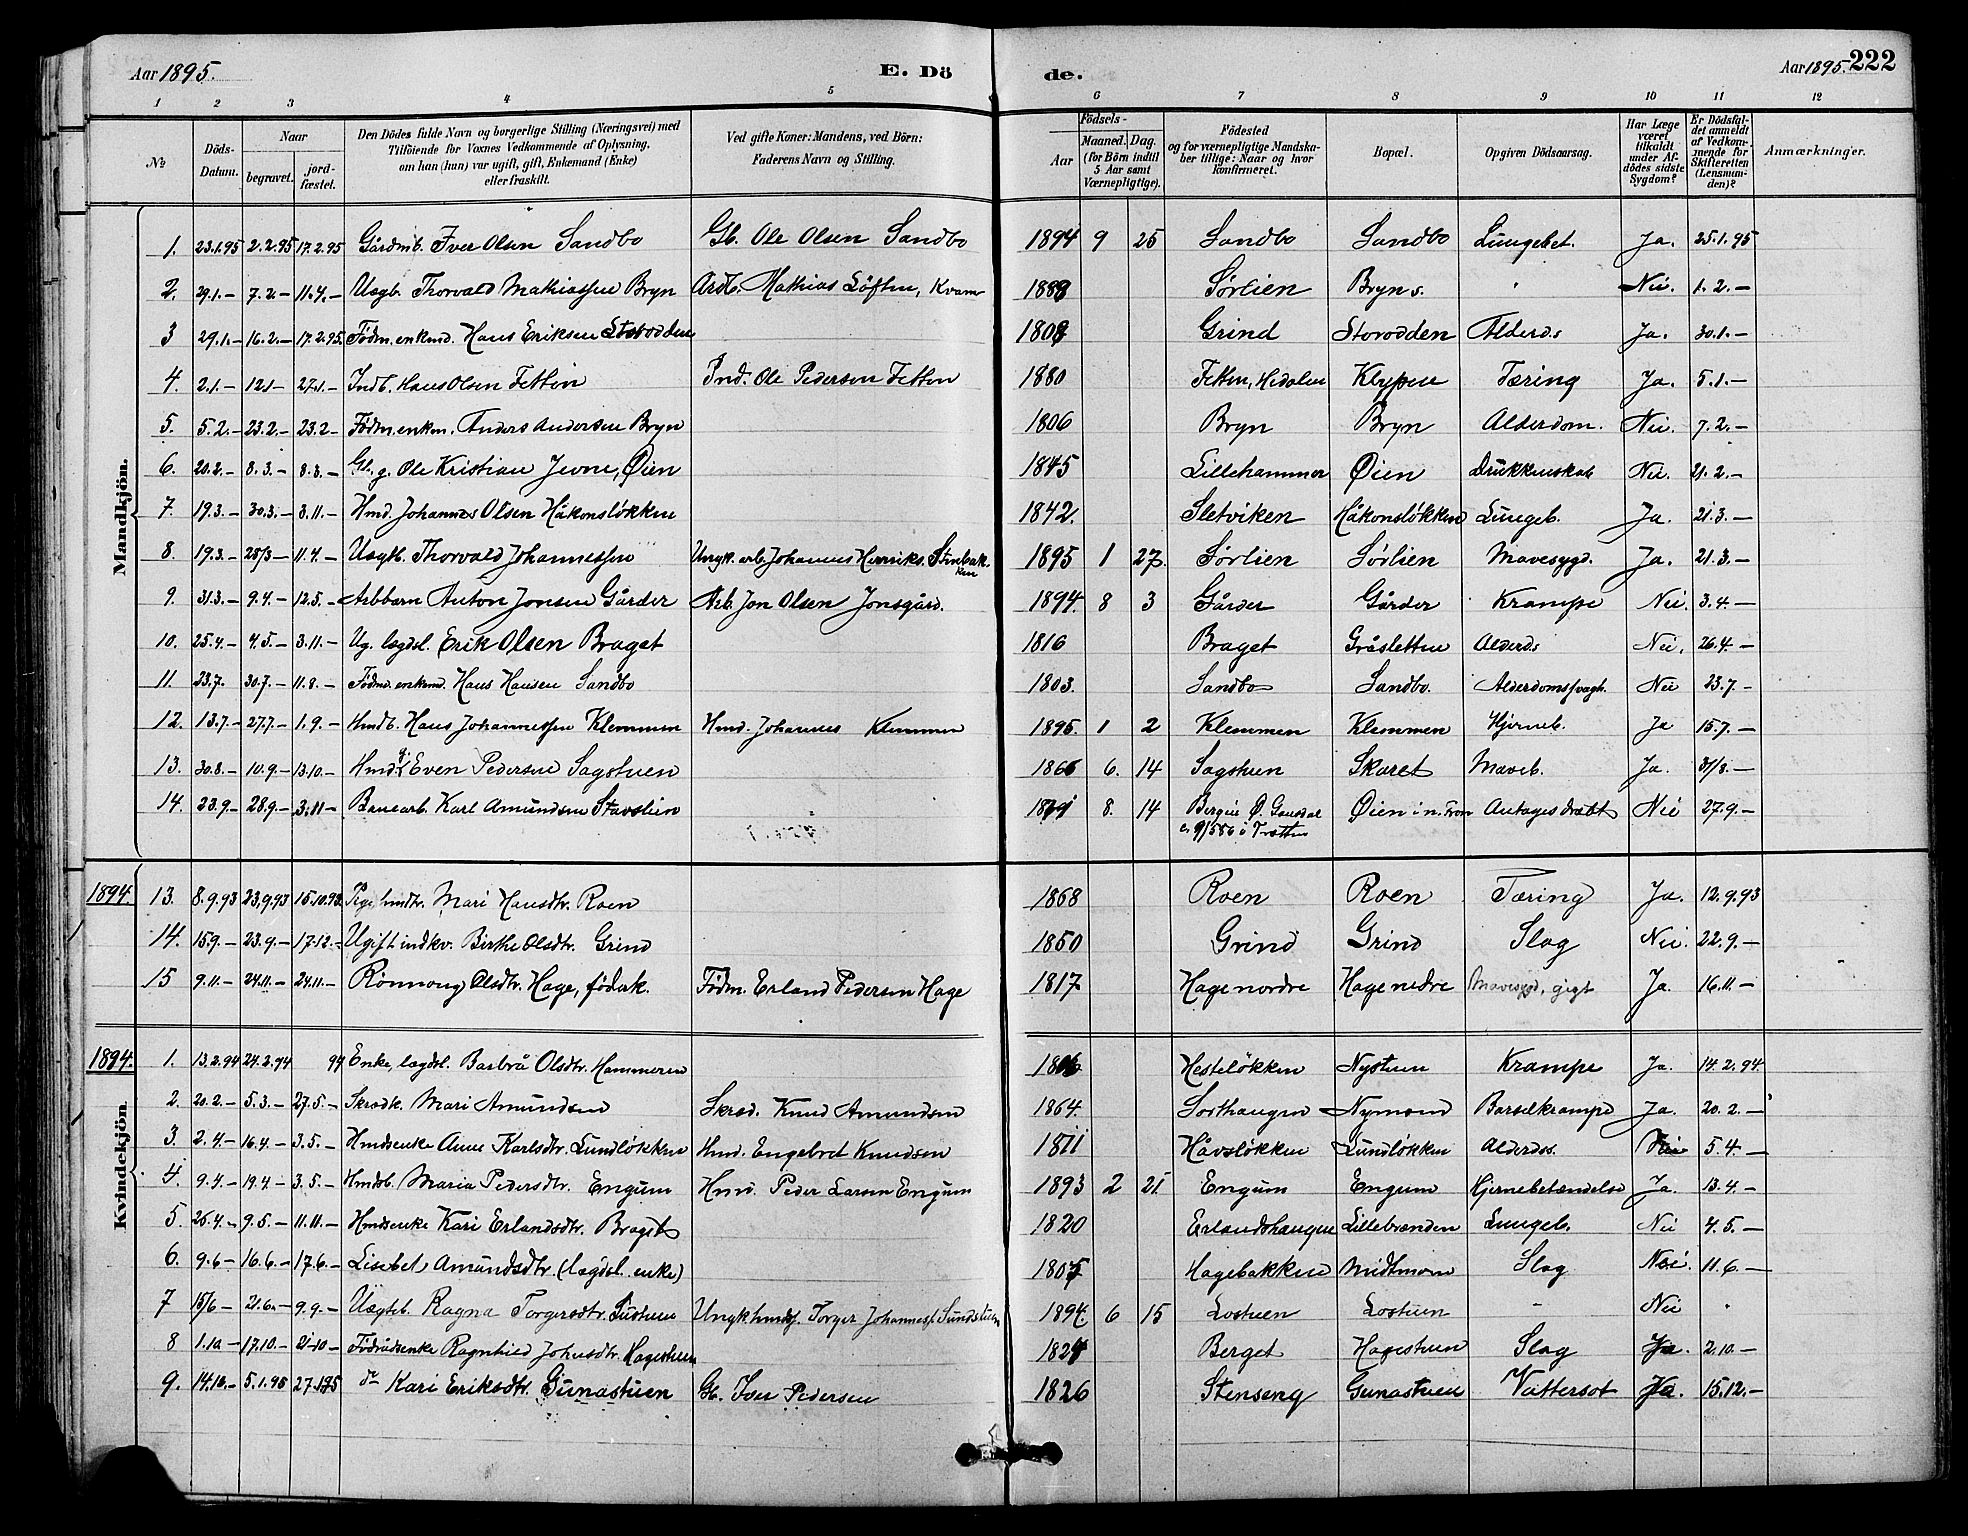 Aar 1895. E. Dö de. Aar 1895. 222
1 2 3 4 5 6 7 8 9 10 11 12
№ Döds-Datum. Naar begravet. jordfæstet. Den Dödes fulde Navn og borgerlige Stilling (Næringsvei) med Tilföiende for Voxnes Vedkommende af Oplysning, om han (hun) var ugift, gift, Enkemand (Enke) eller fraskilt. Ved gifte Koner: Mandens, ved Börn: Faderens Navn og Stilling. Födsels- Aar Maaned. Dag. (for Börn indtil 5 Aar samt Værnepligtige). Födested og for værnepligtige Mandskaber tillige: Naar og hvor konfirmeret. Bopæl. Opgiven Dödsaarsag. Har Læge været tilkaldt under Afdödes sidste Sygdom? Er Dödsfaldet anmeldt af Vedkommende for Skifteretten (Lensmanden)? Anmærkninger.
Mandkjön.
1. 23.1.95 2.2.95 17.2.95 Gårdmb. Iver Olsen Sandbo Gb. Ole Olsen Sandbo 1894 9 25 Sandbo Sandbo Lungebet. Ja. 25.1.95
2. 29.1.– 7.2.– 11.4.– Uægb. Thorvald Mathiassen Bryn Arb. Mathias Löften, Kvam 1888 Sørlien Bryn s. " Nei. 1.2.–
3 29.1.– 16.2.– 17.2.95 Födm. enkmd. Hans Eriksen Storodden 1808 Grind Storodden Alderds Ja. 30.1.–
4. 2.1.– 12.1– 27.1.– Indb. Hans Olsen Fetten Ind. Ole Pedersen Fetten 1880 Fetten, Hedalen Klypen Tæring Ja. 5.1.–
5. 5.2.– 23.2.– 23.2– Födm. enkm. Anders Andersen Bryn 1806 Bryn Bryn Alderdom. Nei. 7.2.–
6. 20.2.– 8.3.– 8.3.– Gb. g. Ole Kristian Jevne, Øien 1845 Lillehammer Øien Drukkenskab Nei. 21.2.–
7. 19.3.– 30.3.– 3.11.– Hmd. Johannes Olsen Håkonsløkken 1842. Sletviken Håkonsløkken Lungeb. Ja. 21.3.–
8. 19.3.– 28/3– 11.4.– Uægtb. Thorvald Johannessen Ungk. arb. Johannes Henriks. Stenbakken 1895 1 27. Sørlien Sørlien Mavesygd. Ja. 21.3.–
9. 31.3.– 9.4.– 12.5.– Arbbarn Anton Jonsen Gårder Arb. Jon Olsen Jonsgård. 1894. 8 3 Gårder Gårder Krampe Nei. 3.4.–
10. 25.4.– 4.5.– 3.11.– Ug. lægdsl. Erik Olsen Braget 1816 Braget Gråsletten Alderds Nei. 26.4.–
11. 23.7. 30.7.– 11.8.– Födmd. enkmd. Hans Hansen Sandbo 1803. Sandbo Sandbo. Alderdomssvagh. Nei 23.7.–
12. 13.7.– 27.7.– 1.9.– Hmdb. Hans Johannessen Klemmen Hmd. Johannes Klemmen 1895. 1 2 Klemmen Klemmen Hjerneb. Ja 15.7.–
13. 30.8.– 10.9.– 13.10.– Hmd. g. Even Pedersen Sagstuen 1866 6. 14 Sagstuen Skaret Maveb. Ja. 31/8.–
14. 23.9– 28.9– 3.11– Banearb. Karl Amundsen Stavslien 8. 14 Bergin Ø. Gausdal Øien i n. Fron Antages dræbt Nei 27.9.–
1894. 13. 8.9.93 23.9.93 15.10.93 Pige, hmdtr. Mari Hansdtr. Roen 1868 Roen Roen Tæring Ja. 12.9.93
14. 15.9.– 23.9.– 17.12.– Ugift indkv. Birthe Olsdtr. Grind 1850 Grind Grind Slag Nei. 22.9.–
15 9.11.– 24.11.– 24.11.– Rønnong Olsdtr. Hage, fødek. Födm. Erland Pedersen Hage 1817 Hage nordre Hage nedre Mavesygd, gigt Ja. 16.11.–
1894. Kvindekjön.
1. 13.2.94 24.2.94 94 Enke, lægdsl. Barbrå Olsdtr. Hammeren Hesteløkken Nystuen Krampe Ja. 14.2.94
2. 20.2.– 5.3.– 27.5.– Skredk. Mari Amundsen Skred. Knud Amundsen 1864. Sorthaugen Nymoen Barselkrampe Ja. 20.2.–
3. 2.4.– 16.4.– 3.5.– Hmdsenke Anne Karlsdtr. Lundløkken Hmd. Engebret Knudsen 1811 Håvsløkken Lundløkken Alderdss. Nei 5.4.–
4. 9.4.– 19.4.– 3.5.– Hmdsb. Maria Pedersdtr. Engum Hmd. Peder Larsen Engum 1893 2 21. Engum Engum Hjernebetændelse Ja. 13.4.–
5. 25.4.– 9.5.– 11.11.– Hmdsenke Kari Erlandsdtr. Braget 1820 Erlandshaugen Lillebrænden Lungeb. Nei 4.5.–
6. 9.6– 16.6.– 17.6.– Lisebet Amundsdtr. (lægdsl. enke) 1805 Hagebakken Midtmoen Slag Nei. 11.6.–
7 15/6– 21.6.– 9.9.– Uægteb. Ragna Torgersdtr. Ungk. hmds. Torger Johanness. Sundstuen 1894. 6 15 Lostuen Lostuen – Nei "
8 1.10– 17.10.– 21.10– Födrådsenke Ragnhild Johnsdtr. Hagestuen 1824 Berget Hagestuen Slag Ja. 2.10–
9. 14.12.– 5.1.95 27.1.95 do Kari Eriksdtr. Gunastuen Gb. Iver Pedersen 1826 Stenseng Gunastuen Vattersot Ja. 15.12.–